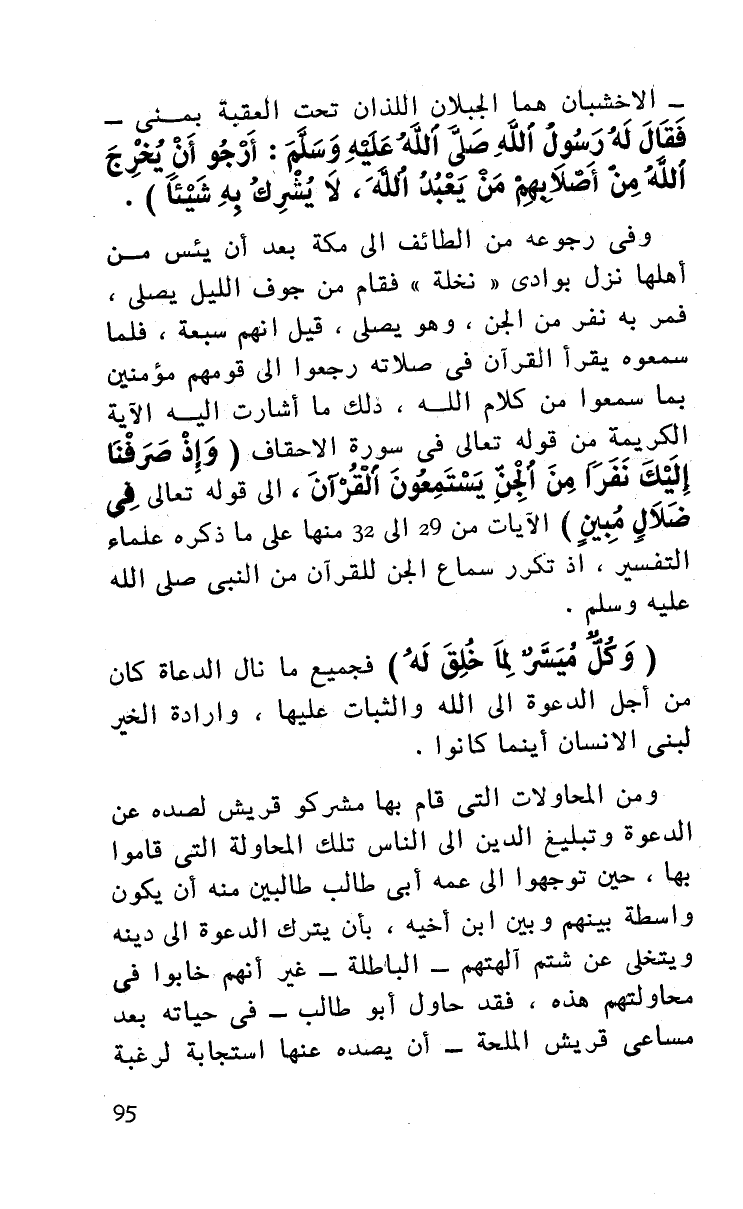 ـ الاخشبان هما الجبلان اللذان تحت العقبة بمـــنى ـ
فَقَالَ لَهُ رَسُولُ ٱللَّهِ صَلَّى ٱللَّهُ عَلَيْهِ وَسَلَّمَ : أَرْجُو أَنْ يُخْرِجَ
ٱللَّهُ مِنْ أَصْلَابِهِمْ مَنْ يَعْبُدُ ٱللَّهَ ، لَا يُشْرِكُ بِهِ شَيْئًا ) .
وفى رجوعه من الطائف الى مكة بعد أن يئس مــن
أهلها نزل بوادى « نخلة » فقام من جوف الليل يصلى ،
فمر به نفر من الجن ، وهو يصلى ، قيل انهم سبعة ، فلما
سمعوه يقرأ القرآن فى صلاته رجعوا الى قومهم مؤمنين
بما سمعوا من كلام اللــه ، ذلك ما أشارت اليــه الآية
الكريمة من قوله تعالى فى سورة الاحقاف ( وَإِذْ صَرَفْنَا
إِلَيْكَ نَفَرًا مِنَ ٱلْجِنِّ يَسْتَمِعُونَ ٱلْقُرْآنَ ، الى قوله تعالى فِي
ضَلَالٍ مُبِينٍ ) الآيات من 29 الى 32 منها على ما ذكره علماء
التفسير ، اذ تكرر سماع الجن للقرآن من النبى صلى الله
عليه وسلم .
( وَكُلٌّ مُيَسَّرٌ لِمَا خُلِقَ لَهُ ) فجميع ما نال الدعاة كان
من أجل الدعوة الى الله والثبات عليها ، وارادة الخير
لبنى الانسان أينما كانوا .
ومن المحاولات التى قام بها مشركو قريش لصده عن
الدعوة وتبليغ الدين الى الناس تلك المحاولة التى قاموا
بها ، حين توجهوا الى عمه أبى طالب طالبين منه أن يكون
واسطة بينهم وبين ابن أخيه ، بأن يترك الدعوة الى دينه
ويتخلى عن شتم آلهتهم ـ الباطلة ـ غير أنهم خابوا فى
محاولتهم هذه ، فقد حاول أبو طالب ـ فى حياته بعد
مساعى قريش الملحة ـ أن يصده عنها استجابة لرغبة
95